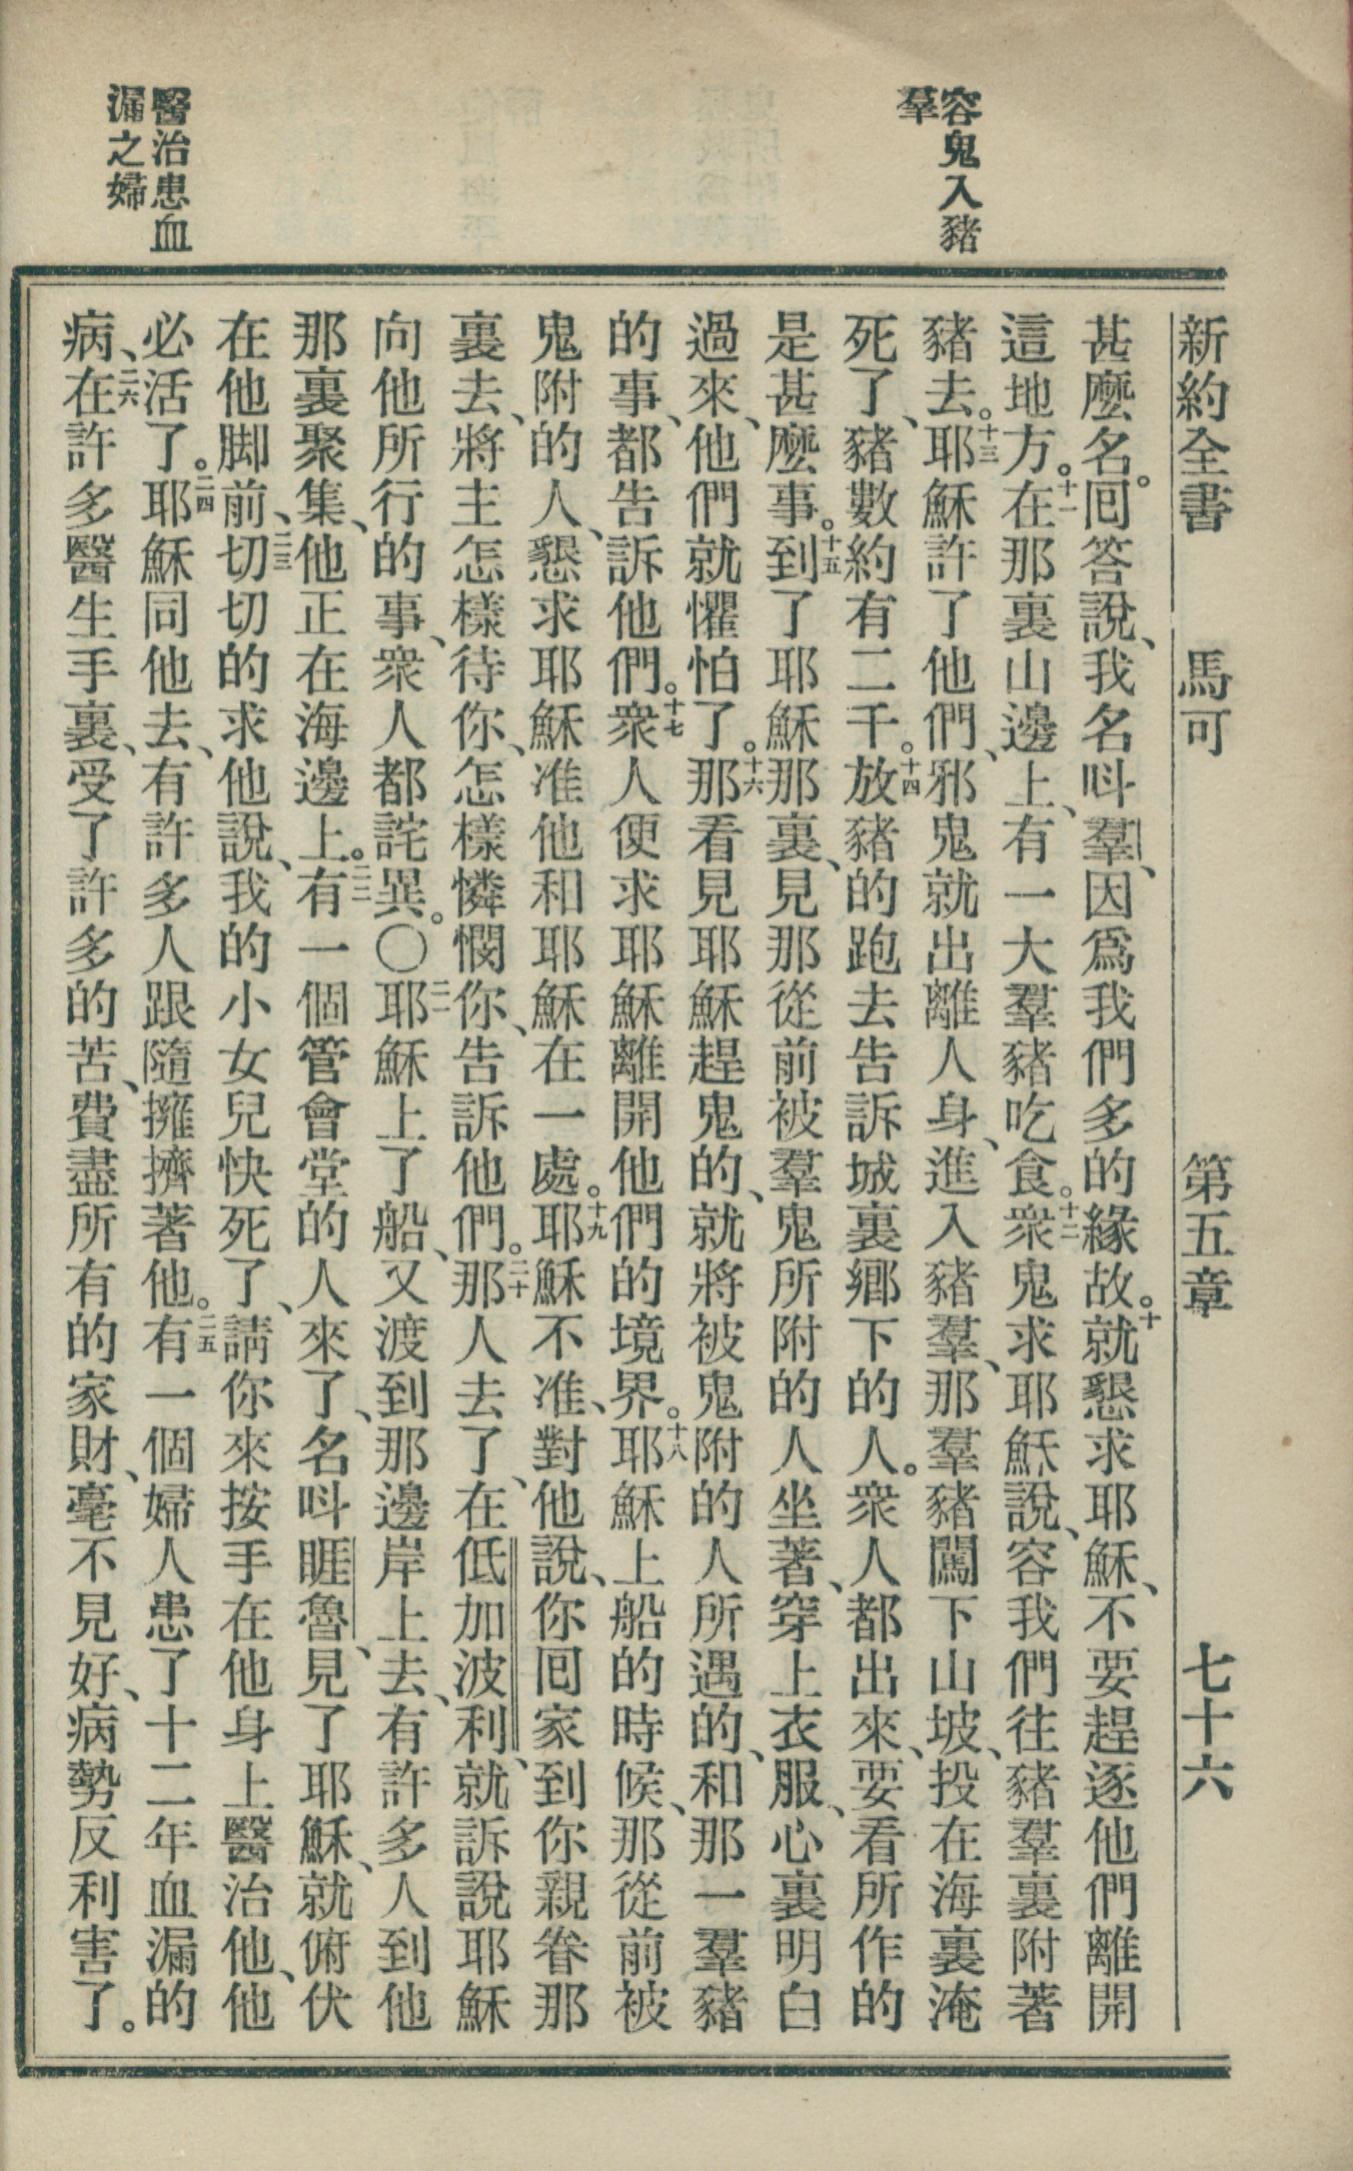 容鬼入豬
羣
醫治患血
漏之婦
新約全書 馬可 第五章 七十六
甚麼名。回答說、我名呌羣、因爲我們多的緣故。十就懇求耶穌、不要趕逐他們離開
這地方。十一在那裏山邊上、有一大羣豬吃食。十二衆鬼求耶穌說、容我們往豬羣裏附著
豬去。十三耶穌許了他們、邪鬼就出離人身、進入豬羣、那羣豬闖下山坡、投在海裏淹
死了、豬數約有二千。十四放豬的跑去告訴城裏鄉下的人。衆人都出來、要看所作的
是甚麼事。十五到了耶穌那裏、見那從前被羣鬼所附的人坐著、穿上衣服、心裏明白
過來、他們就懼怕了。十六那看見耶穌趕鬼的、就將被鬼附的人所遇的、和那一羣豬
的事、都告訴他們。十七衆人便求耶穌離開他們的境界。十八耶穌上船的時候、那從前被
鬼附的人、懇求耶穌准他和耶穌在一處。十九耶穌不准、對他說、你回家到你親眷那
裏去、將主怎樣待你、怎樣憐憫你、告訴他們。二十那人去了、在低加波利、就訴說耶穌
向他所行的事、衆人都詫異。〇二一耶穌上了船、又渡到那邊岸上去、有許多人到他
那裏聚集、他正在海邊上。二二有一個管會堂的人來了、名呌睚魯、見了耶穌、就俯伏
在他脚前、二三切切的求他說、我的小女兒快死了、請你來按手在他身上醫治他、他
必活了。二四耶穌同他去、有許多人跟隨擁擠著他。二五有一個婦人患了十二年血漏的
病、二六在許多醫生手裏、受了許多的苦、費盡所有的家財、毫不見好、病勢反利害了。